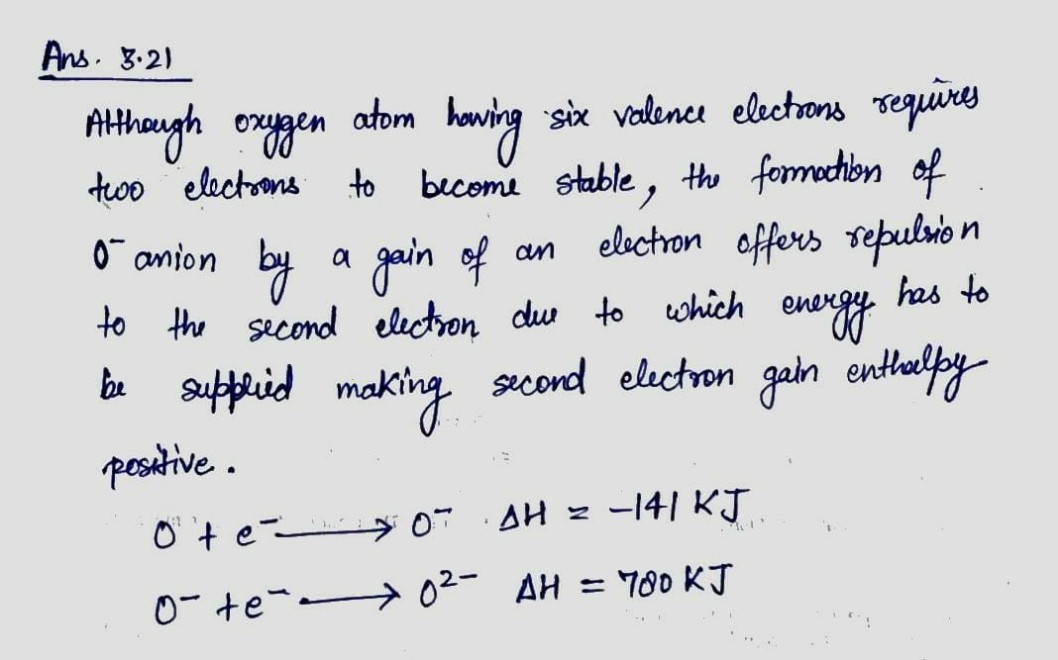 Ans. 3.21
Although oxygen atom having six valence electrons requires
two electrons to become stable, the formation of
O⁻ anion by a gain of an electron offers repulsion
to the second electron due to which energy has to
be supplied making second electron gain enthalpy
positive.
O + e⁻ ⟶ O⁻ ΔH = -141 KJ
O⁻ + e⁻ ⟶ O²⁻ ΔH = 780 KJ